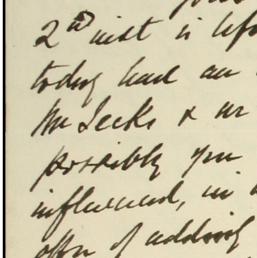 2nd inst is
today had an
Mr Leeks & we
possibly you
influenced, in
offer of adding